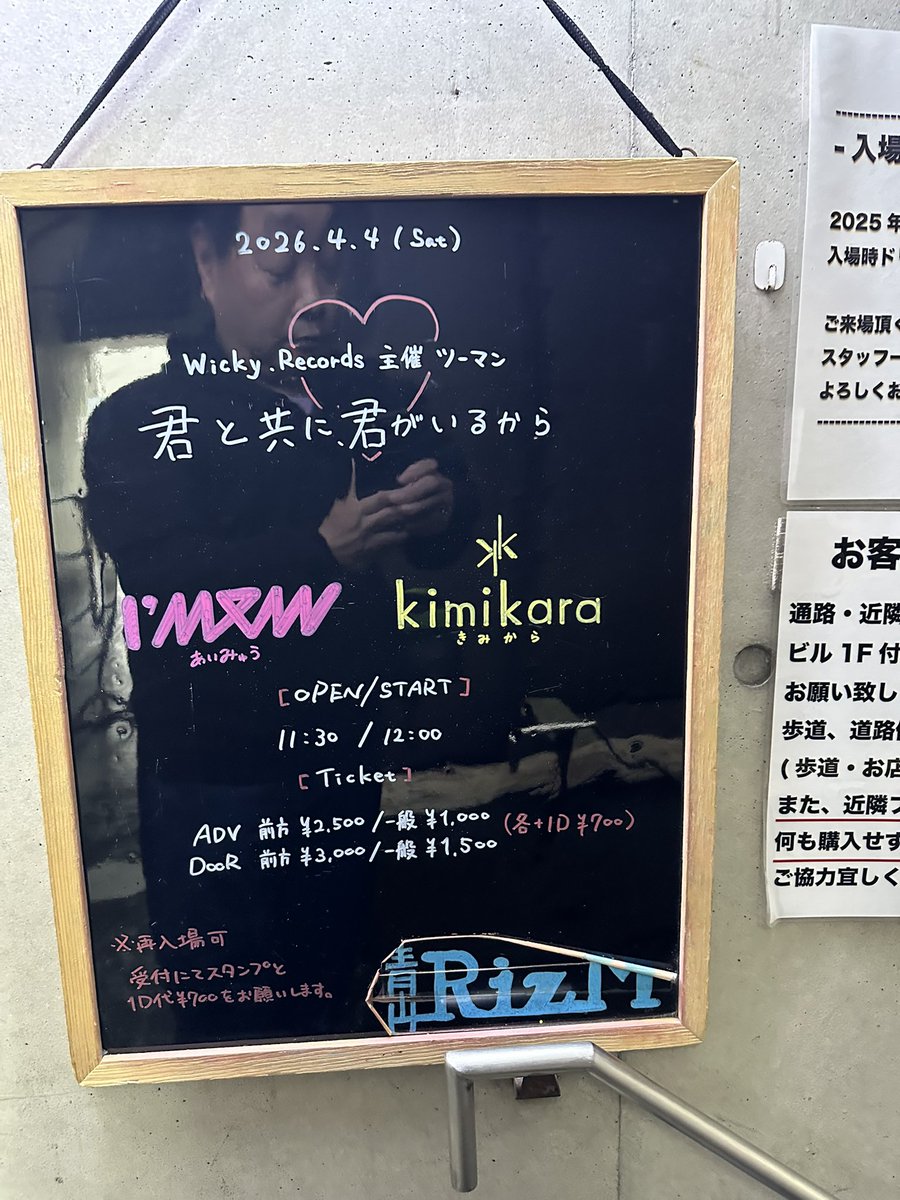 2026.4.4 (Sat)
Wicky.Records 主催 ツーマン
君と共に、君がいるから
I'M&W
あいみゅう
kimikara
きみから
[OPEN/START]
11:30 / 12:00
[Ticket]
ADV 前方 ¥2,500/一般 ¥1,000 (各+1D ¥700)
DooR 前方 ¥3,000/一般 ¥1,500
※再入場可
受付にてスタンプと
1D代¥700をお願いします。
青山 RizM
- 入場
2025 年
入場時ド
ご来場頂く
スタッフー
よろしくお
お客
通路・近隣
ビル 1F 付
お願い致し
歩道、道路
(歩道・お店
また、近隣
何も購入せず
ご協力宜しく